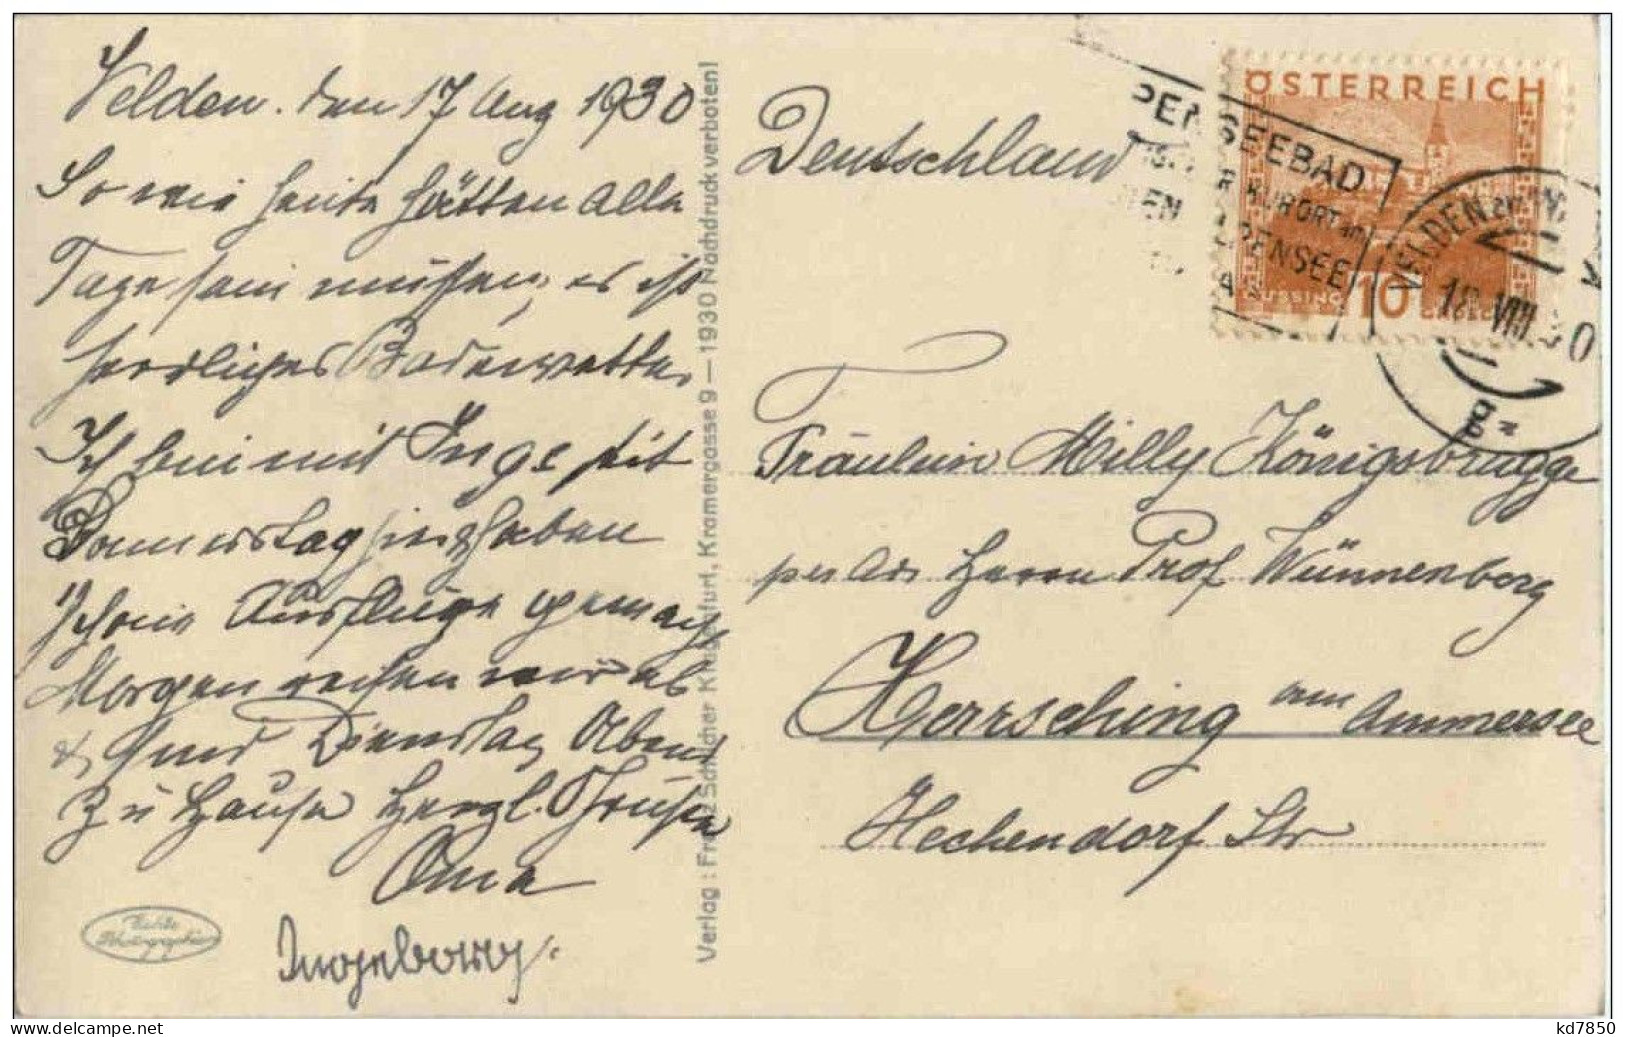 Velden. den 17 Aug 1930
So wie heute hätten alle
Tage sein müssen, es ist
herrliches Badewetter
Ich bin mit Inge seit
Donnerstag hier & haben
schöne Ausflüge gemacht
Morgen reisen wir ab
& sind Dienstag Abend
zu Hause Herzl. Grüsse
Oma
Ingeborg.
Echte Photographie
Verlag: Franz Schilcher Klagenfurt, Kramergasse 9 — 1930 Nachdruck verboten!
Deutschland
ÖSTERREICH
SEEBAD
KURORT am
SEE
GÜSSING 10
VELDEN am
18 VIII 30
Fräulein Milly Königsbrügge
per Adr Herrn Prof Wünnenberg
Herrsching am Ammersee
Hechendorf Str
kd7850
https://www.delcampe.net